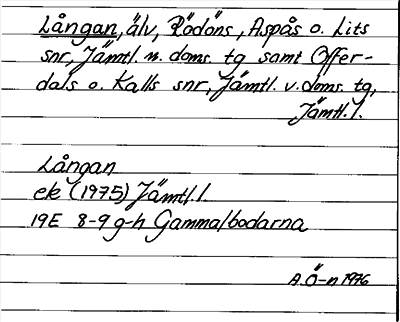 Långan, älv, Rödöns, Aspås o. Lits
snr, Jämtl. n. doms. tg samt Offer-
dals o. Kalls snr, Jämtl. v. doms. tg,
Jämtl. l.
Långan
ek (1975) Jämtl. l.
19E 8-9 g-h Gammalbodarna
A. Ö-n 1976